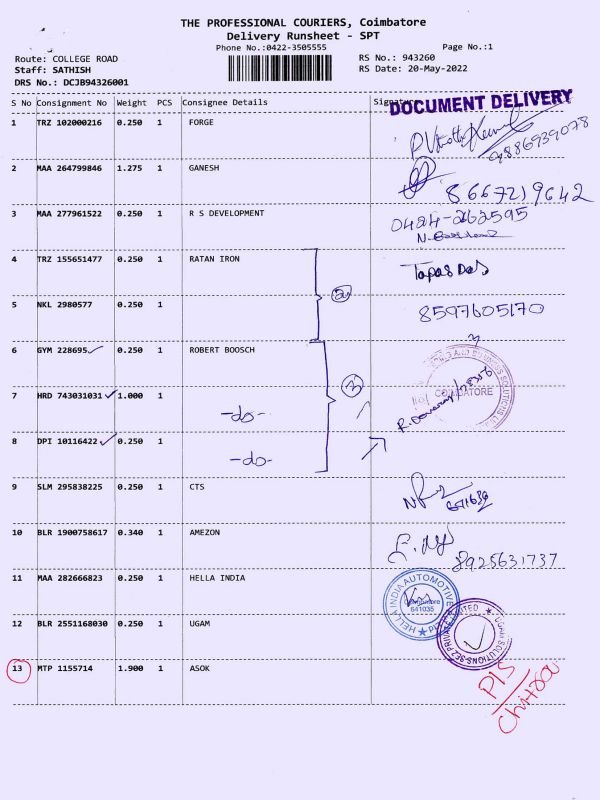 THE PROFESSIONAL COURIERS, Coimbatore
Delivery Runsheet - SPT
Phone No.:0422-3505555 Page No.:1
Route: COLLEGE ROAD RS No.: 943260
Staff: SATHISH RS Date: 20-May-2022
DRS No.: DCJB94326001
S No Consignment No Weight PCS Consignee Details Signature
DOCUMENT DELIVERY
1 TRZ 102000216 0.250 1 FORGE
9886939078
2 MAA 264799846 1.275 1 GANESH
8667219642
3 MAA 277961522 0.250 1 R S DEVELOPMENT 0424-262595
4 TRZ 155651477 0.250 1 RATAN IRON Tapas Das
5 NKL 2980577 0.250 1 8597605170
6 GYM 228695 0.250 1 ROBERT BOOSCH
7 HRD 743031031 1.000 1 -do- 3 COIMBATORE
8 DPI 10116422 0.250 1 -do-
9 SLM 295838225 0.250 1 CTS
10 BLR 1900758617 0.340 1 AMEZON
8925631737
11 MAA 282666823 0.250 1 HELLA INDIA HELLA INDIA AUTOMOTIVE
641035
12 BLR 2551168030 0.250 1 UGAM
13 MTP 1155714 1.900 1 ASOK PIS
Chitra